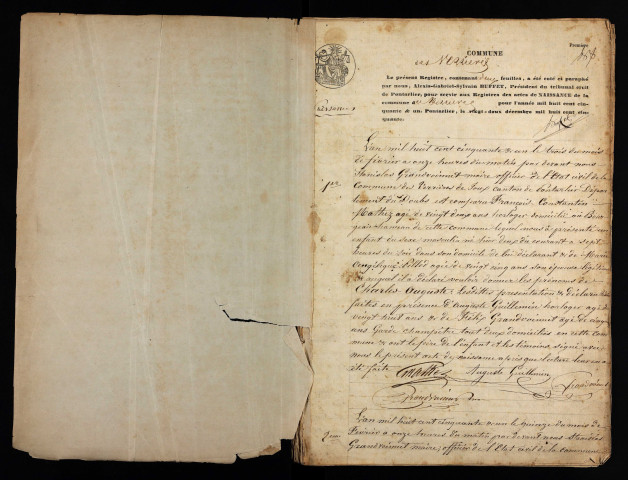 Première
COMMUNE
des Verrières
Le présent Registre, contenant deux feuilles, a été coté et paraphé
par nous, Alexis-Gabriel-Sylvain HUFFET, Président du tribunal civil
de Pontarlier, pour servir aux Registres des actes de NAISSANCE de la
commune des Verrières pour l'année mil huit cent cin-
quante & un. Pontarlier, le vingt-deux décembre mil huit cent cin-
quante.
Naissances
1er
L'an mil huit cent cinquante & un le trois du mois
de février à onze heures du matin par devant nous
Stanislas Grandvoinnet maire officier de l'Etat civil de la
Commune des Verrières de Joux canton de Pontarlier Dépar-
tement du Doubs est comparu François Constantin
Mathez agé de vingt deux ans horloger domicilié au
hameau de cette commune lequel nous a présenté un
enfant du sexe masculin né hier deux du courant à sept
heures du soir dans son domicile de lui déclarant & de Marie
Angélique agée de vingt cinq ans son épouse légitime
& auquel il a déclaré vouloir donner les prénoms de
Charles Auguste. Lesdites présentation & déclaration
faites en présence d'Auguste Guillemin horloger agé de
vingt huit ans & de Félix Grandvoinnet agé de
ans Garde champêtre tout deux domiciliés en cette com
mune & ont le père de l'enfant & les témoins, signé avec
nous le présent acte de naissance après que lecture leur en a
été faite.
Mathez Auguste Guillemin
Grandvoinnet
Grandvoinnet
2me
L'an mil huit cent cinquante & un le quinze du mois de
Février à onze heures du matin par devant nous Stanislas
Grandvoinnet maire, officier de l'Etat civil de la commune